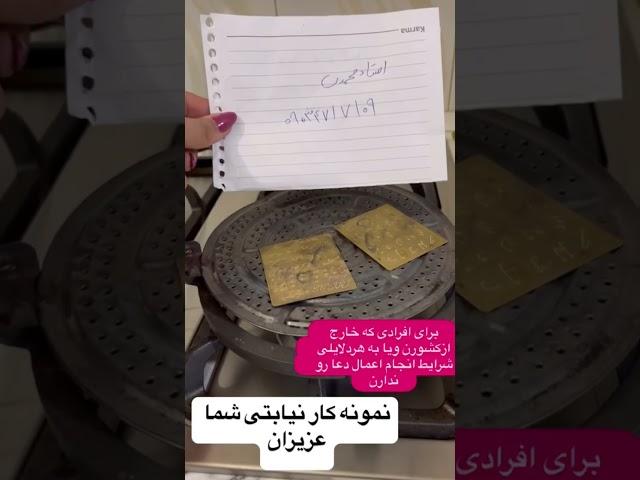 Karma
استاد محمدی
برای افرادی که خارج
ازکشورن ویا به هردلایلی
شرایط انجام اعمال دعا رو
ندارن
نمونه کار نیابتی شما
عزیزان
برای افرادی